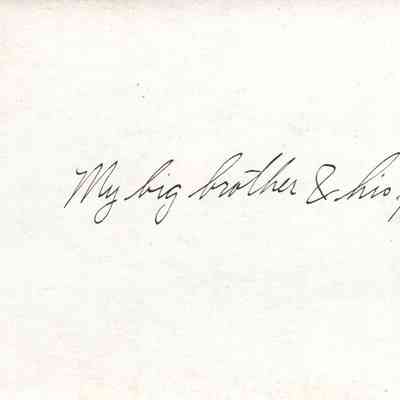 My big brother & his